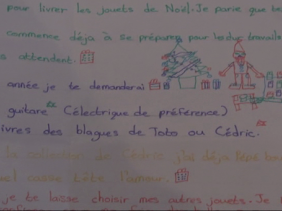 pour livrer les jouets de Noël. Je parie que te
commence déjà à se préparer pour les durs travails
s attendent.
année je te demanderai
guitare (électrique de préférence)
ivres des blagues de Toto ou Cédric.
la collection de Cédric j'ai déjà
casse tête
je te laisse choisir mes autres jouets. Je